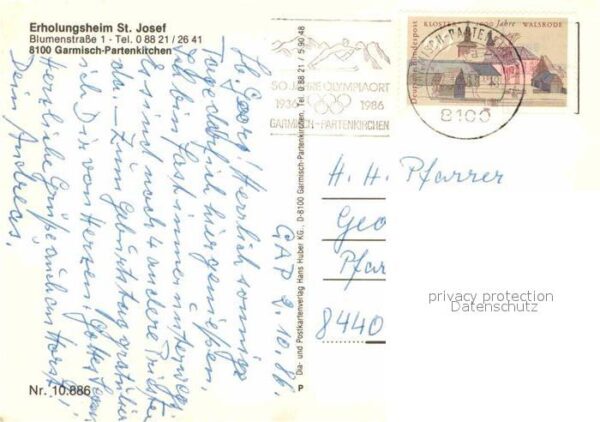 Erholungsheim St. Josef
Blumenstraße 1 - Tel. 0 88 21 / 26 41
8100 Garmisch-Partenkirchen
GAP 2.10.86
Lb. Georg! Herrlich sonnige
Tage darf ich hier genießen,
Ich bin fast immer unterwegs.
Es sind noch 4 andere Priester
da. - Zum Geburtstag gratuliere
ich Dir von Herzen. Gottes Segen!
Herzliche Grüße auch an Horst!
Dein Andreas.
Nr. 10.886
Dia- und Postkartenverlag Hans Huber KG., D-8100 Garmisch-Partenkirchen, Tel. 0 88 21 / 5 90 48
P
50 JAHRE OLYMPIAORT
1936 1986
GARMISCH-PARTENKIRCHEN
Deutsche Bundespost
KLOSTER 1000 Jahre WALSRODE
GARMISCH-PARTENKIRCHEN
8100
H. H. Pfarrer
Geo
Pfar
8440
privacy protection
Datenschutz